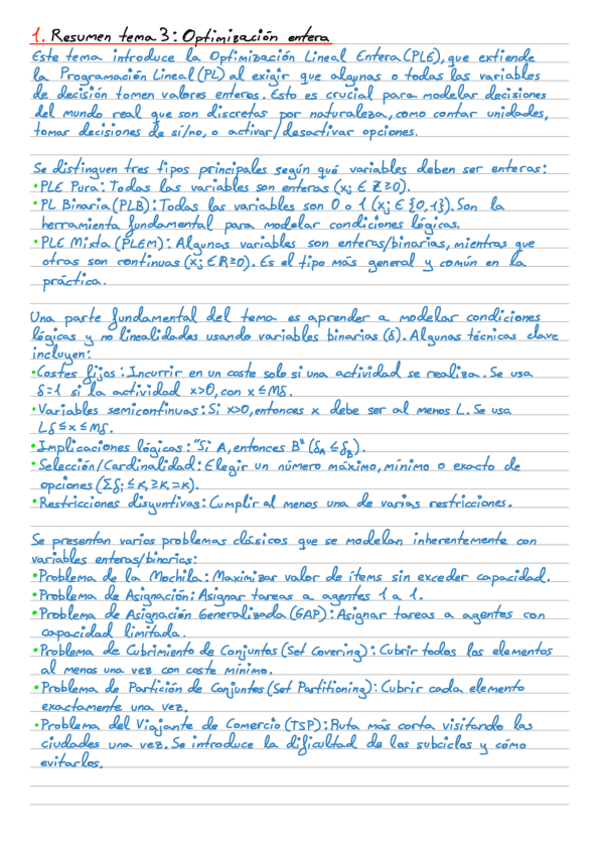 1. Resumen tema 3: Optimización entera
Este tema introduce la Optimización Lineal Entera (PLE), que extiende
la Programación Lineal (PL) al exigir que algunas o todas las variables
de decisión tomen valores enteros. Esto es crucial para modelar decisiones
del mundo real que son discretas por naturaleza, como contar unidades,
tomar decisiones de sí/no, o activar/desactivar opciones.
Se distinguen tres tipos principales según qué variables deben ser enteras:
• PLE Pura: Todas las variables son enteras (xⱼ ∈ ℤ≥0).
• PL Binaria (PLB): Todas las variables son 0 o 1 (xⱼ ∈ {0,1}). Son la
herramienta fundamental para modelar condiciones lógicas.
• PLE Mixta (PLEM): Algunas variables son enteras/binarias, mientras que
otras son continuas (xⱼ ∈ ℝ≥0). Es el tipo más general y común en la
práctica.
Una parte fundamental del tema es aprender a modelar condiciones
lógicas y no linealidades usando variables binarias (δ). Algunas técnicas clave
incluyen:
• Costes fijos: Incurrir en un coste solo si una actividad se realiza. Se usa
δ=1 si la actividad x>0, con x≤Mδ.
• Variables semicontinuas: Si x>0, entonces x debe ser al menos L. Se usa
Lδ≤x≤Mδ.
• Implicaciones lógicas: "Si A, entonces B" (δ_A ≤ δ_B).
• Selección/Cardinalidad: Elegir un número máximo, mínimo o exacto de
opciones (Σδᵢ≤K, ≥K, =K).
• Restricciones disyuntivas: Cumplir al menos una de varias restricciones.
Se presentan varios problemas clásicos que se modelan inherentemente con
variables enteras/binarias:
• Problema de la Mochila: Maximizar valor de ítems sin exceder capacidad.
• Problema de Asignación: Asignar tareas a agentes 1 a 1.
• Problema de Asignación Generalizada (GAP): Asignar tareas a agentes con
capacidad limitada.
• Problema de Cubrimiento de Conjuntos (Set Covering): Cubrir todos los elementos
al menos una vez con coste mínimo.
• Problema de Partición de Conjuntos (Set Partitioning): Cubrir cada elemento
exactamente una vez.
• Problema del Viajante de Comercio (TSP): Ruta más corta visitando las
ciudades una vez. Se introduce la dificultad de los subciclos y cómo
evitarlos.